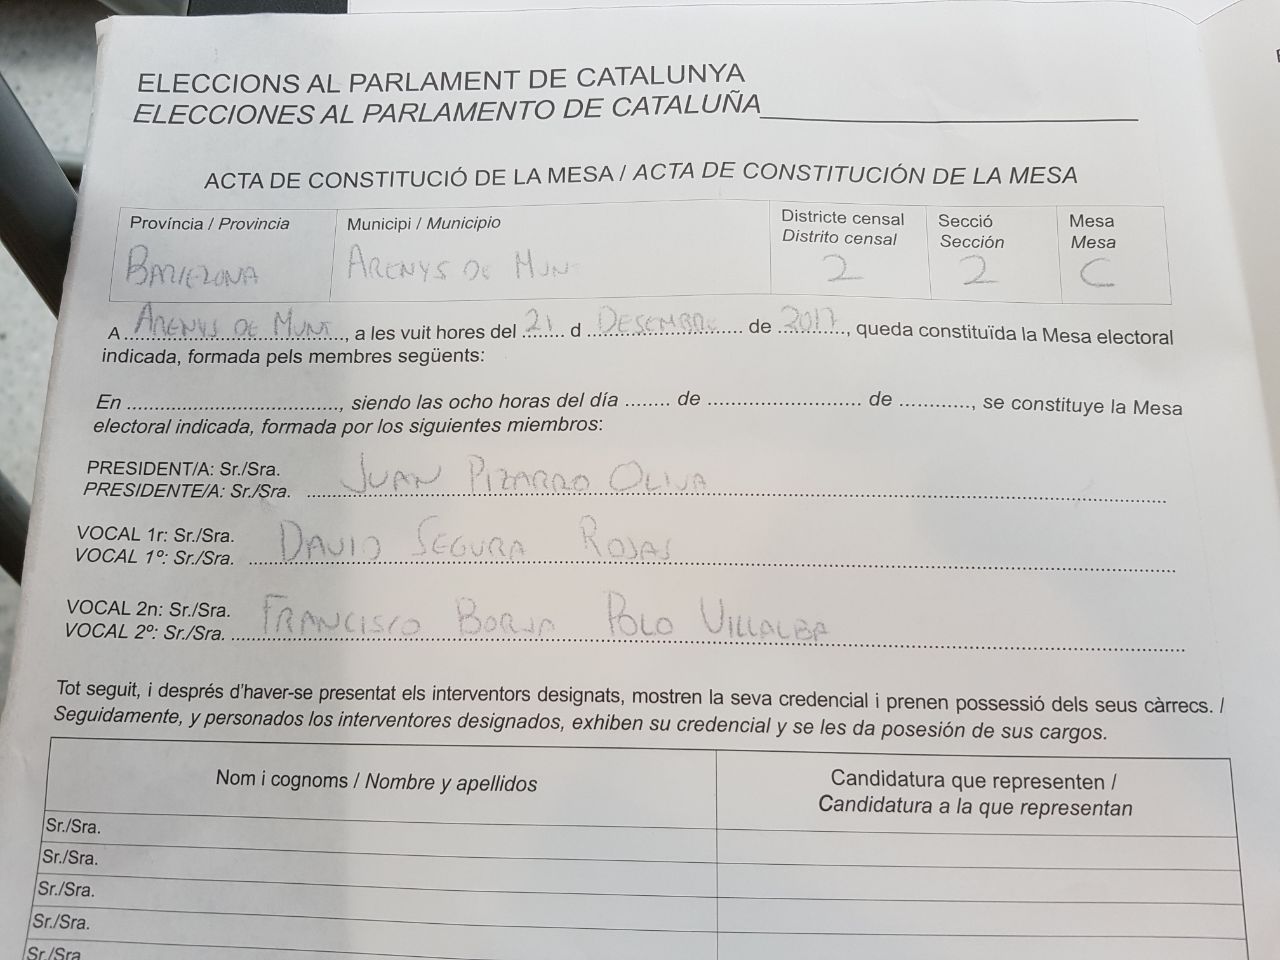 ELECCIONS AL PARLAMENT DE CATALUNYA
ELECCIONES AL PARLAMENTO DE CATALUÑA
ACTA DE CONSTITUCIÓ DE LA MESA / ACTA DE CONSTITUCIÓN DE LA MESA
Província / Provincia Municipi / Municipio Districte censal Secció Mesa
Distrito censal Sección Mesa
BARCELONA ARENYS DE MUNT 2 2 C
A ARENYS DE MUNT, a les vuit hores del 21 d DESEMBRE de 2017, queda constituïda la Mesa electoral
indicada, formada pels membres següents:
En ......................................, siendo las ocho horas del día ........ de ............................ de ............, se constituye la Mesa
electoral indicada, formada por los siguientes miembros:
PRESIDENT/A: Sr./Sra. JUAN PIZARRO OLIVA
PRESIDENTE/A: Sr./Sra.
VOCAL 1r: Sr./Sra. DAVID SEGURA ROJAS
VOCAL 1º: Sr./Sra.
VOCAL 2n: Sr./Sra. FRANCISCO BORJA POLO VILLALBA
VOCAL 2º: Sr./Sra.
Tot seguit, i després d'haver-se presentat els interventors designats, mostren la seva credencial i prenen possessió dels seus càrrecs. /
Seguidamente, y personados los interventores designados, exhiben su credencial y se les da posesión de sus cargos.
Nom i cognoms / Nombre y apellidos Candidatura que representen /
Candidatura a la que representan
Sr./Sra.
Sr./Sra.
Sr./Sra.
Sr./Sra.
Sr./Sra